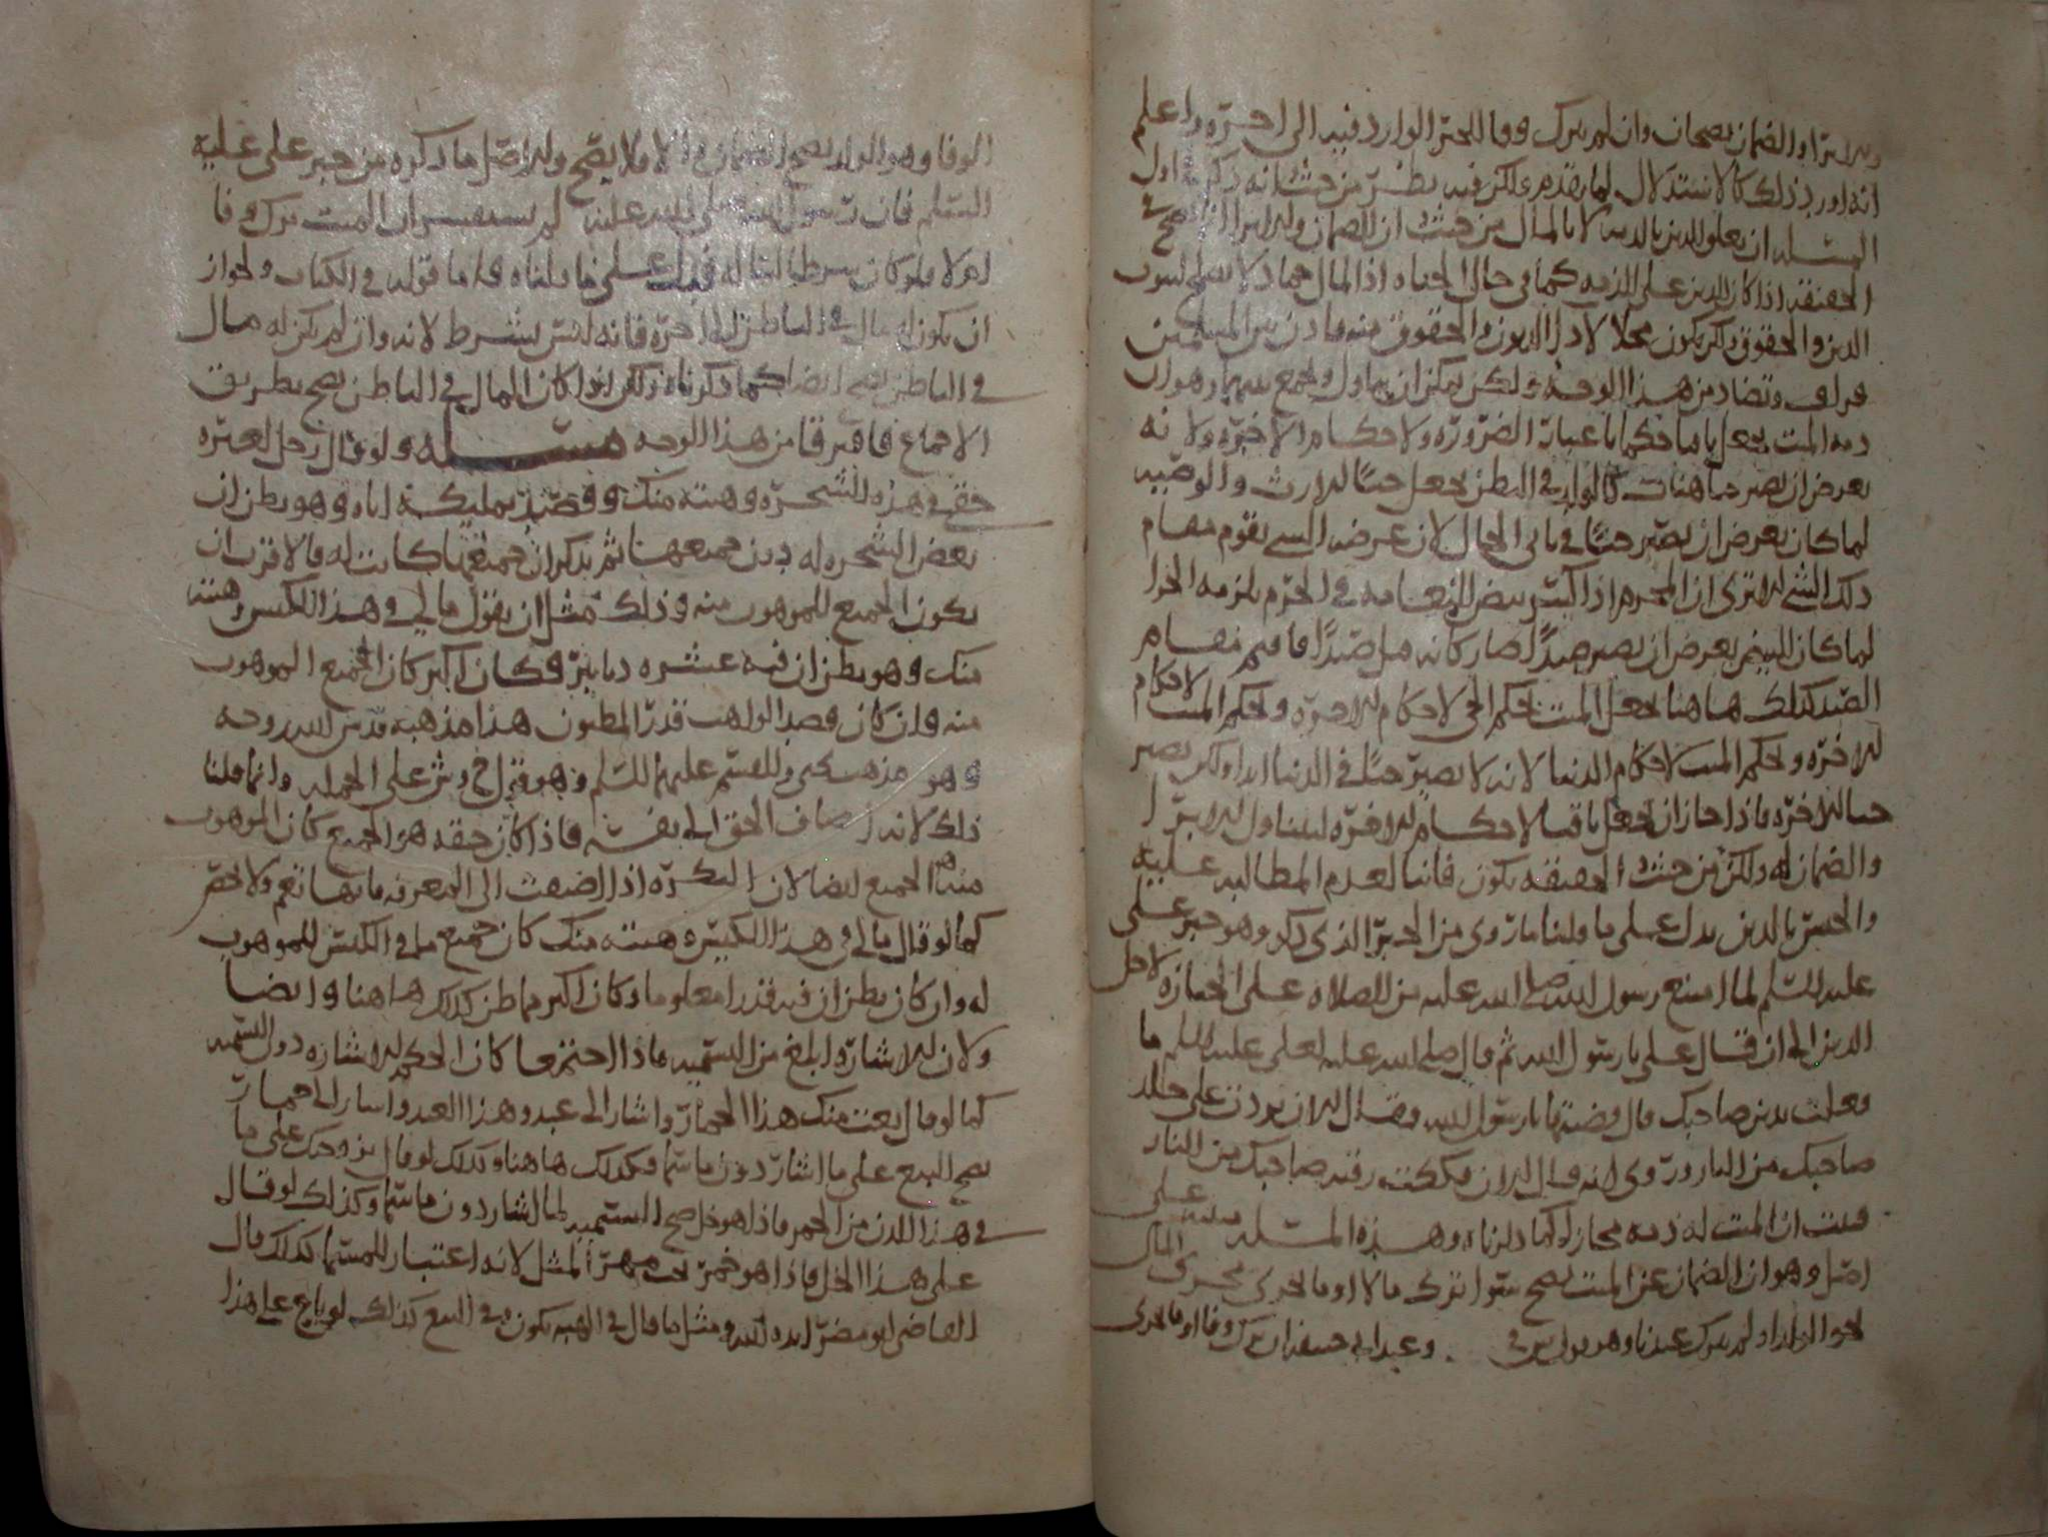 والابرا والضمان يصحان وان لم يترك وفا للخبر الوارد فيه الى اخره واعلم
انه اورد ذلك كالاستدلال لما تقدم ولكن فيه نظر من حيث انه ذكر في اول
المسئله ان تعلق الدين بالدين لا بالمال من حيث ان الضمان والابرا انما يصح في
الحقيقه اذا كان الدين على الذمه كما في حال الحياه اذ المال جماد لا يصلح لثبوت
الدين والحقوق ولكن يكون محلا لادا الديون والحقوق منه
وتضاد من هذا الوجه ولكن يمكن ان يتاول ويجمع بينهما وهو ان
ذمه الميت يجعل باقيا حكما باعتبار الضروره ولاحكام الاخره ولانه
بعرض ان يصير حيا هناك كالولد في البطن يجعل حيا للارث والوصيه
لما كان بعرض ان يصير حيا في ثاني الحال لان عرض الشي يقوم مقام
ذلك الشي الا ترى ان المحرم اذا كسر بيض النعامه في الحرم يلزمه الجزا
لما كان البيض بعرض ان يصير صيدا صار كانه قتل صيدا فاقيم مقام
الصيد كذلك هاهنا يجعل الميت بحكم الحي لاحكام الاخره وبحكم الميت لاحكام
للاخره وبحكم الميت لاحكام الدنيا لانه لا يصير حيا في الدنيا ابدا ولكن يصير
حيا للاخره فاذا جاز ان يجعل باقيا لاحكام الاخره ليتناول الابرا
والضمان له ولكن من حيث الحقيقه يكون فانيا لعدم المطالبه عليه
والحبس بالدين يدل على ما قلنا ما روي من الخبر الذي ذكر وهو خبر علي
عليه السلم لما امتنع رسول الله صلى الله عليه من الصلاه على الجنازه لاجل
الدين الى ان قال علي يا رسول الله ثم قال صلى الله عليه لعلي عليه السلم ما
فعلت بدين صاحبك قال قضيته يا رسول الله فقال الان بردت على جلد
صاحبك من النار وروي انه قال الان فككت رقبه صاحبك من النار
فثبت ان الميت له ذمه مجازا كما ذكرناه وهذه المسئله مبنيه على
اصل وهو ان الضمان عن الميت يصح سوا ترك مالا او ما يجري مجرى المال
نحو الولد او لم يترك عندنا وهو قول وعند ابي حنيفه ان ترك وفا او ما يجري
الوفا وهو الولد يصح الضمان والا فلا يصح والاصل ما ذكره من خبر علي عليه
السلم فان رسول الله صلى الله عليه لم يستفسر ان الميت ترك وفا
ام لا فلو كان شرطا لساله فدل على ما قلناه فاما قوله في الكتاب ولجواز
ان يكون له مال في الباطن الى اخره فانه ليس بشرط لانه وان لم يكن له مال
في الباطن يصح ايضا كما ذكرناه ولكن اذا كان المال في الباطن يصح بطريق
الاجماع فافترقا من هذا الوجه مسئله ولو قال رجل لغيره
حقي في هذه الشجره وهبته منك وقصد تمليكه اياه وهو يظن ان
بعض الشجره له دون جميعها ثم تذكر ان جميعها كانت له فالاقرب ان
يكون الجميع للموهوب منه وذلك مثل ان يقول مالي في هذا الكيس وهبته
منك وهو يظن ان فيه عشره دنانير فكان اكثر كان الجميع الموهوب
منه وان كان قصد الواهب قدر المظنون هذا مذهبه قدس الله روحه
وهو مذهب يحيى والقسم عليهما السلم وهو قول ح وش على الجمله وانما قلنا
ذلك لانه اضاف الحق الى نفسه فاذا كان حقه هو الجميع كان الموهوب
منه الجميع ايضا لان النكره اذا اضيفت الى المعرفه فانها تعم ولا تخص
كما لو قال مالي في هذا الكيس وهبته منك كان جميع ما في الكيس للموهوب
له وان كان يظن ان فيه قدرا معلوما وكان اكثر مما ظن كذلك هاهنا وايضا
ولان الاشاره ابلغ من التسميه فاذا اجتمعا كان الحكم للاشاره دون التسميه
كما لو قال بعت منك هذا الحمار واشار الى عبد وهذا العبد واشار الى حمار
يصح البيع على ما اشار دون ما سما فكذلك هاهنا وكذلك لو قال تزوجتك على ما
في هذا الدن من الخمر فاذا هو خل صح التسميه لما اشار دون ما سما وكذلك لو قال
على هذا الخل فاذا هو خمر يجب مهر المثل لانه اعتبار للمسما كذلك قال
القاضي ابو مضر ايده الله ومثل ما قال في الهبه يكون في البيع كذلك لو باع على هذا